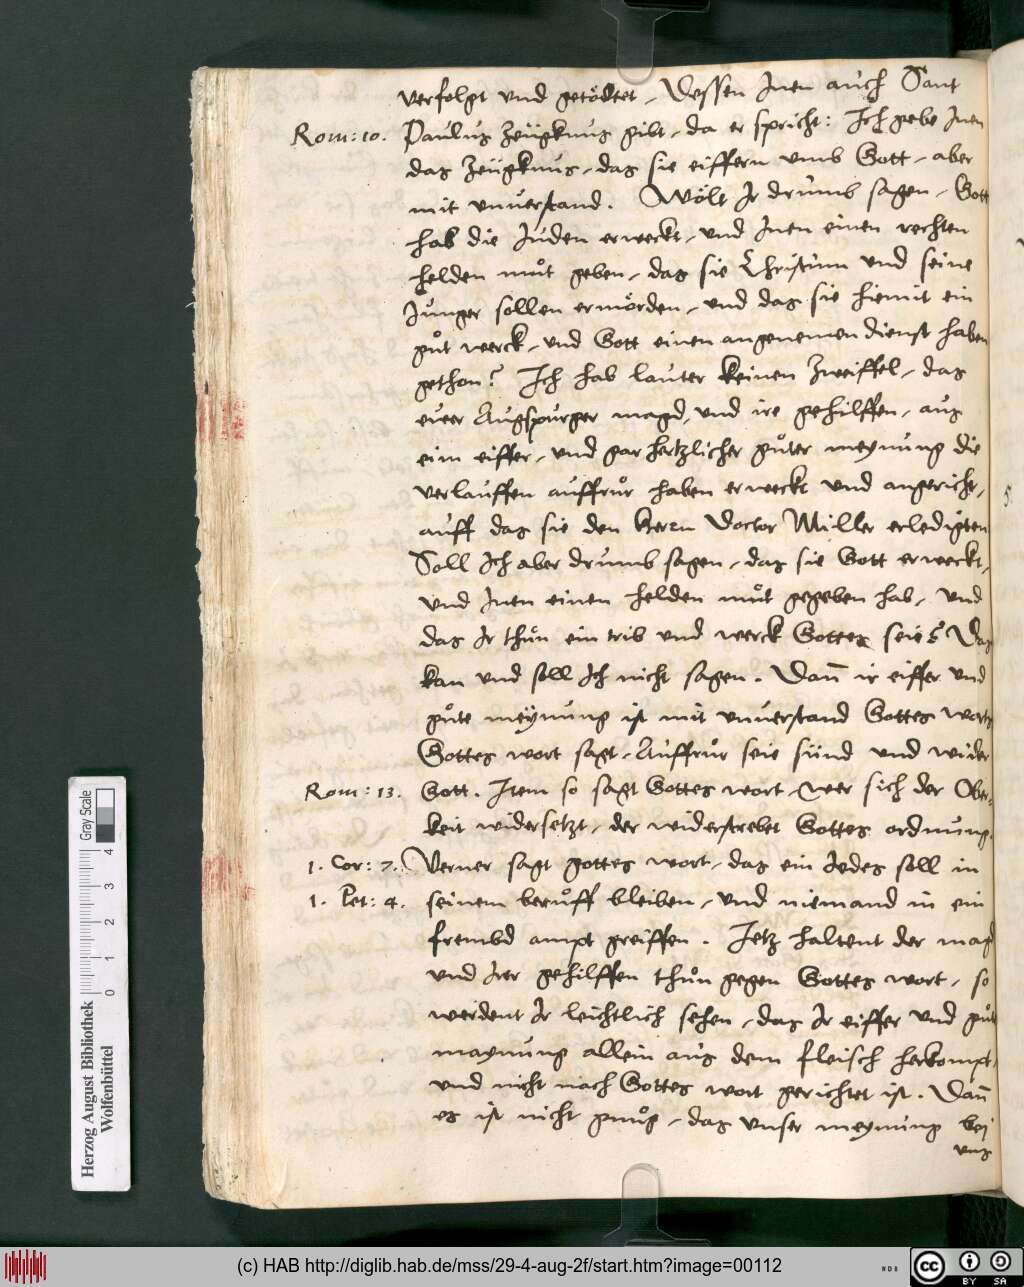 verfolgt und getödtet, Dessen Inen auch Sant
Rom: 10. Paulus Zeügknus gibt, da er spricht: Ich gebe Inen
das Zeügknus, das sie eiffern umb Gott, aber
mit unverstand. Wölt Ir drumb sagen, Gott
hab die Juden erweckt, und Inen einen rechten
helden můt geben, das sie Christum und seine
Junger sollen ermörden, und das sie hiemit ein
gůt werck, und Gott einen angenemen dienst haben
gethon? Ich hab lauter keinen Zweiffel, das
eüer Augspurger magd, und ire gehilffen, aus
eim eiffer, und gar hertzlicher gůter meynung die
verlauffen auffrůr haben erweckt und angericht,
auff das sie den Herrn Doctor Miller erledigten
Soll Ich aber drumb sagen, das sie Gott erweckt,
und Inen einen helden můt gegeben hab, und
das Ir thůn ein trib und werck Gottes seie? Das
kan und soll Ich nicht sagen. Dann̄ ir eiffer und
gůte meynung ist mit unverstand Gottes worts
Gottes wort sagt, Auffrůr seie sünd und wider
Rom: 13. Gott. Item so sagt Gottes wort, wer sich der Ober-
keit widersetzt, der widerstrebet Gottes ordnung.
1. Cor: 7. Verner sagt gottes wort, das ein Iedes soll in
1. Pet: 4. seinem berůff bleiben, und niemand in ein
frembd ampt greiffen. Jetz haltent der magd
und Irer gehilffen thůn gegen Gottes wort, so
werdent Ir leichtlich sehen, das Ir eiffer und gůte
maynung allein aus dem fleisch herkompt,
und nicht nach Gottes wort gerichtet ist. Dan̄
es ist nicht gnůg, das unser meynung bej
uns
5.
Herzog August Bibliothek
Wolfenbüttel
0 1 2 3 4
Gray Scale
(c) HAB http://diglib.hab.de/mss/29-4-aug-2f/start.htm?image=00112
WDB
cc BY SA